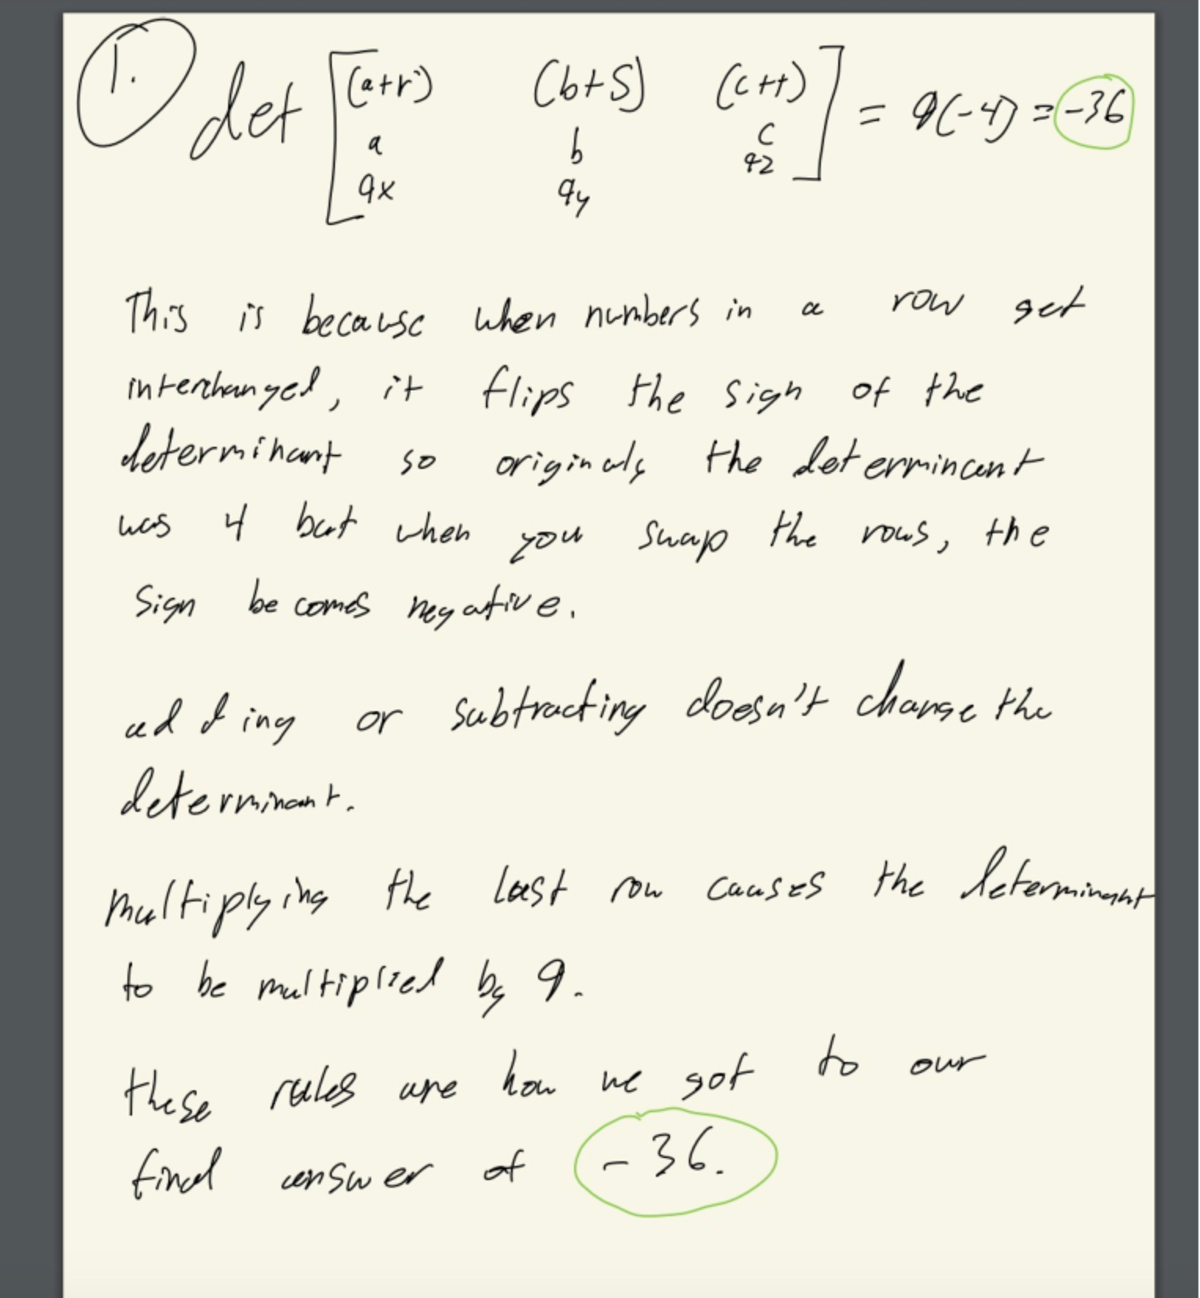 1.
det [ (a+r) (b+s) (c+t) ] = 9(-4) = -36
a b c
9x 9y 9z
This is because when numbers in a row get
interchanged, it flips the sign of the
determinant so originaly the determinant
was 4 but when you swap the rows, the
sign becomes negative.
adding or subtracting doesn't change the
determinant.
Multiplying the last row causes the determinant
to be multiplied by 9.
these rules are how we got to our
final answer of -36.